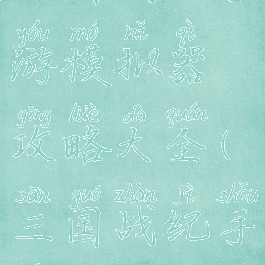 yóu mó nǐ qì
游模拟器
gōng lüè dà quán
攻略大全(
sān guó zhàn jì shǒu
三国战纪手